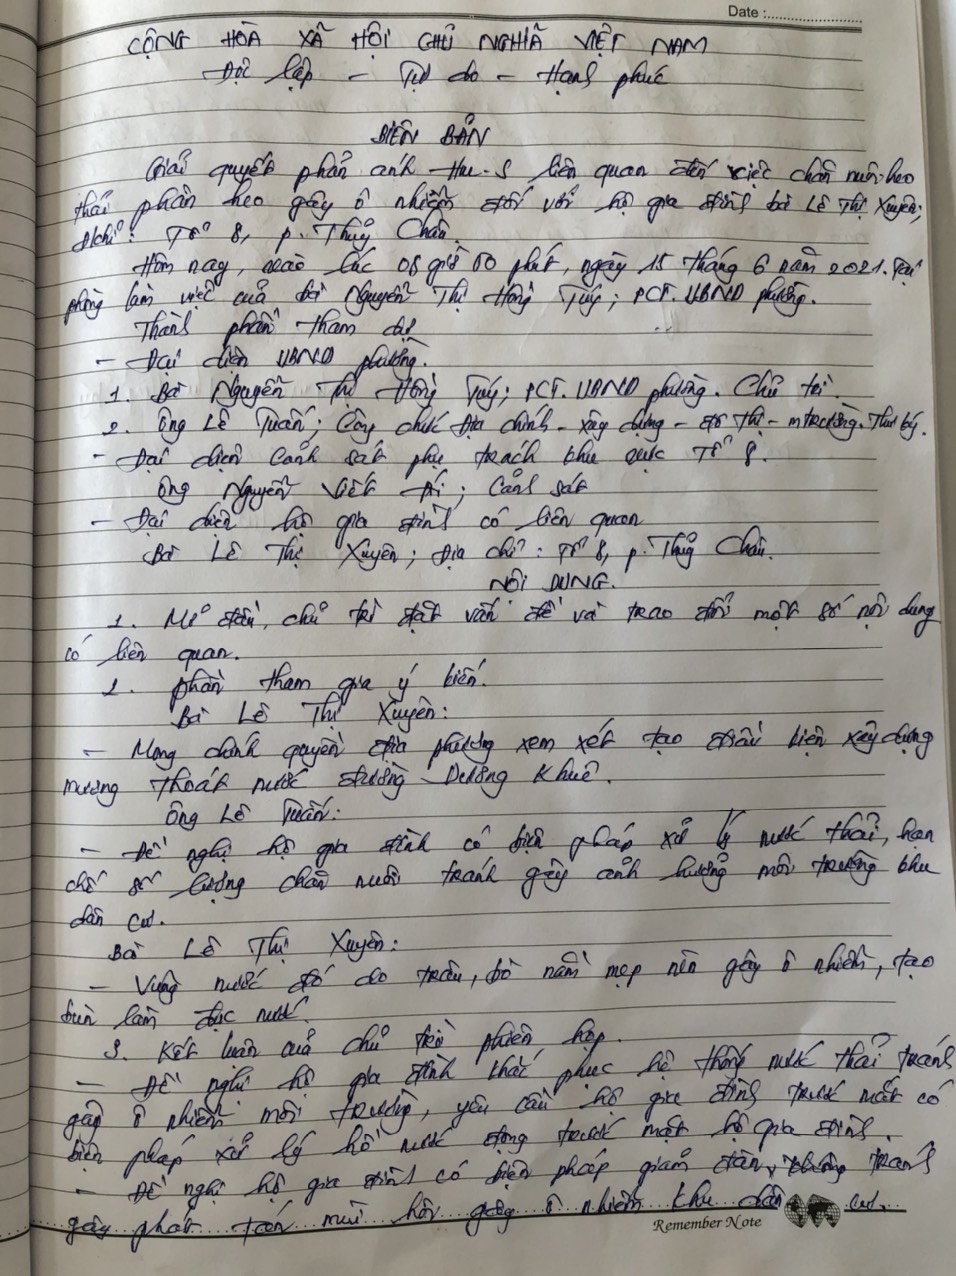 Date :
CỘNG HÒA XÃ HỘI CHỦ NGHĨA VIỆT NAM
Độc lập - Tự do - Hạnh phúc
BIÊN BẢN
Giải quyết phản ánh Hue-S liên quan đến việc chăn nuôi heo
thải phân heo gây ô nhiễm đối với hộ gia đình bà Lê Thị Xuyên;
Đ/chỉ: Tổ 8, p. Thủy Châu.
Hôm nay, vào lúc 08 giờ 00 phút, ngày 15 tháng 6 năm 2021. Tại
phòng làm việc của bà Nguyễn Thị Hồng Túy; PCT.UBND phường.
Thành phần tham dự
- Đại diện UBND phường.
1. Bà Nguyễn Thị Hồng Túy; PCT.UBND phường. Chủ trì.
2. Ông Lê Tuấn; Công chức Địa chính - xây dựng - đô thị - mtrường. Thư ký.
- Đại diện Cảnh sát phụ trách khu vực Tổ 8.
Ông Nguyễn Viết; Cảnh sát
- Đại diện hộ gia đình có liên quan
Bà Lê Thị Xuyên; Địa chỉ: Tổ 8, p. Thủy Châu.
NỘI DUNG.
1. Mở đầu, chủ trì đặt vấn đề và trao đổi một số nội dung
có liên quan.
2. Phần tham gia ý kiến.
Bà Lê Thị Xuyên:
- Mong chính quyền địa phương xem xét tạo điều kiện xây dựng
mương thoát nước đường Dương Khuê.
Ông Lê Tuấn:
- Đề nghị hộ gia đình có biện pháp xử lý nước thải, hạn
chế số lượng chăn nuôi tránh gây ảnh hưởng môi trường khu
dân cư.
Bà Lê Thị Xuyên:
- Vũng nước đó do trâu, bò nằm mẹp nên gây ô nhiễm, tạo
bùn làm đục nước.
3. Kết luận của chủ trì phiên họp.
- Đề nghị hộ gia đình khắc phục hệ thống nước thải tránh
gây ô nhiễm môi trường, yêu cầu hộ gia đình trước mắt có
biện pháp xử lý hồ nước đọng trước mặt hộ gia đình.
- Đề nghị hộ gia đình có biện pháp giảm đàn, tránh
gây phát tán mùi hôi gây ô nhiễm khu dân cư.
Remember Note